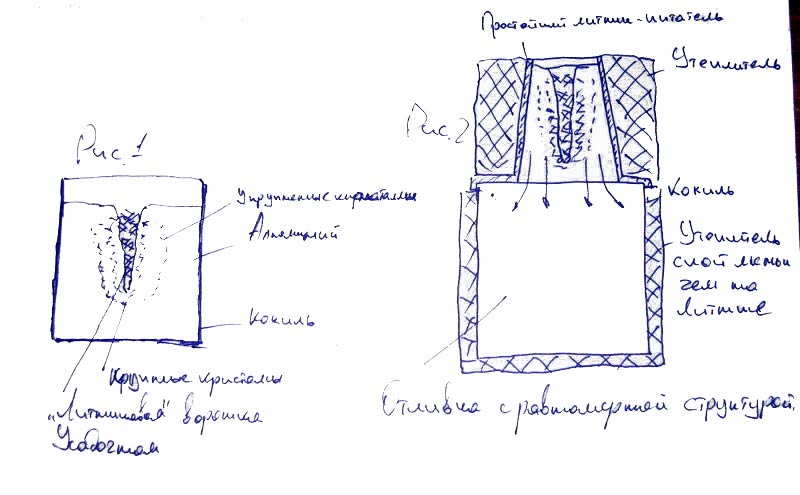 Рис. 1
Укрупненные кристаллы
Алюминий
Кокиль
Крупные кристаллы
"Литниковая" воронка
Рис. 2
Простейший литник-питатель
Утеплитель
Кокиль
Утеплитель
слой меньше
чем на
литнике
Отливка с равномерной структурой.